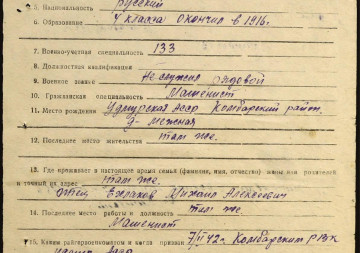 5. Национальность русский
6. Образование 4 класса окончил в 1916г.
7. Военно-учетная специальность 133
8. Должностная квалификация
9. Военное звание Не служил рядовой
10. Гражданская специальность Машенист
11. Место рождения Удмурская АССР Камбарский район.
д. Межная
12. Последнее место жительства там же.
13. Где проживает в настоящее время семья (фамилия, имя, отчество) жены или родителей
и точный их адрес там же.
отец Михаил Алексеевич
14. Последнее место работы и должность там же.
Машенист
15. Каким райгорвоенкоматом и когда призван 42г. Камбарским РВК